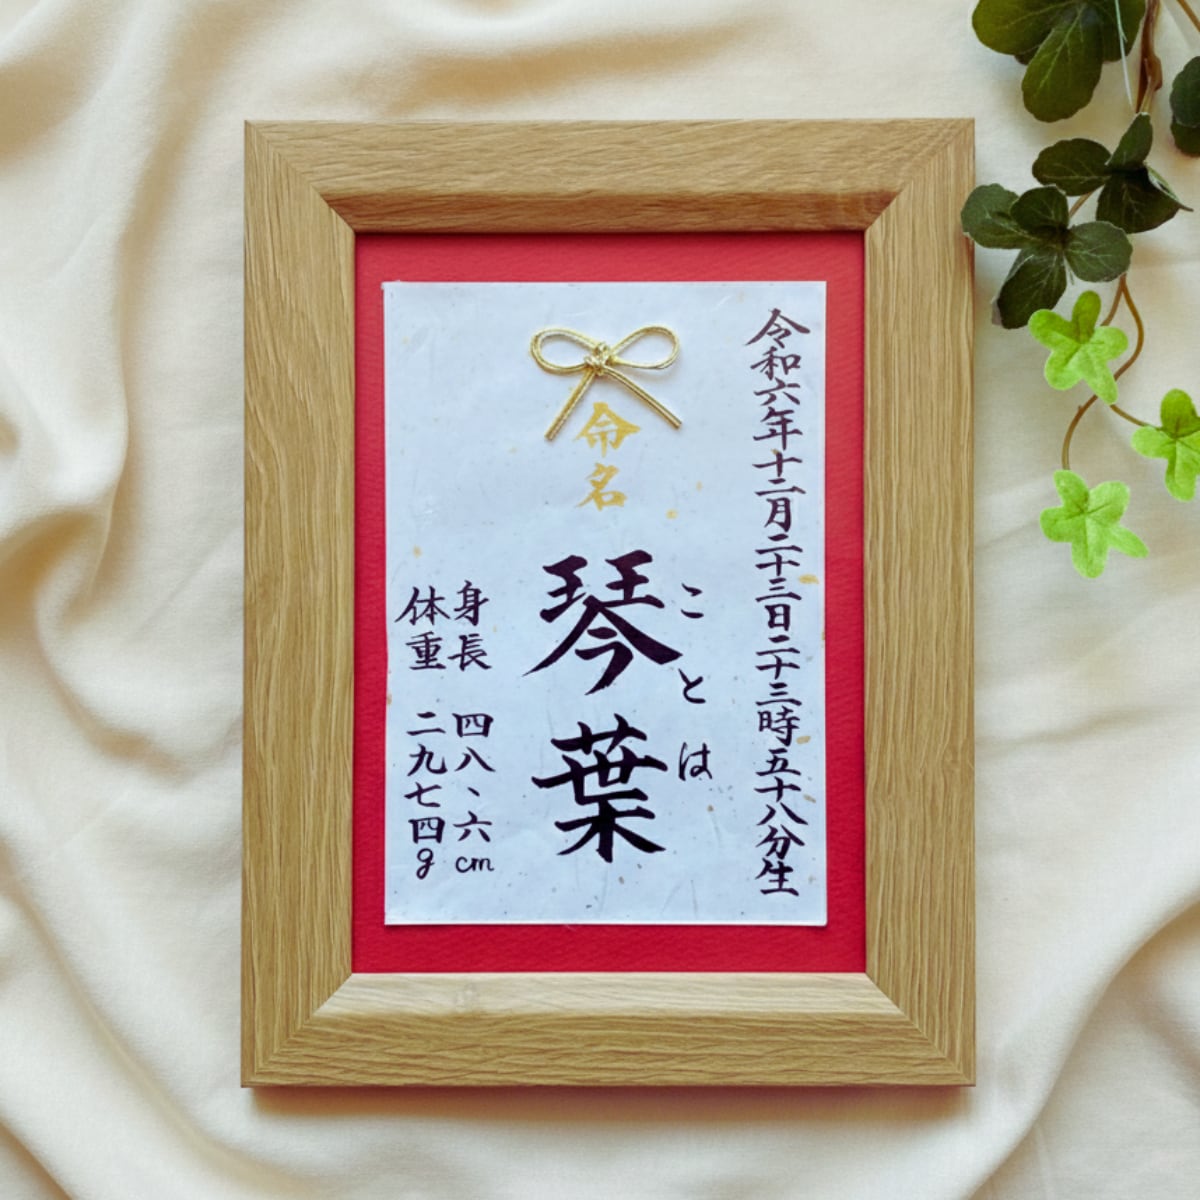 令和六年十二月二十三日二十三時五十八分生
命名
琴葉
ことは
身長 四八、六cm
体重 二九七四g